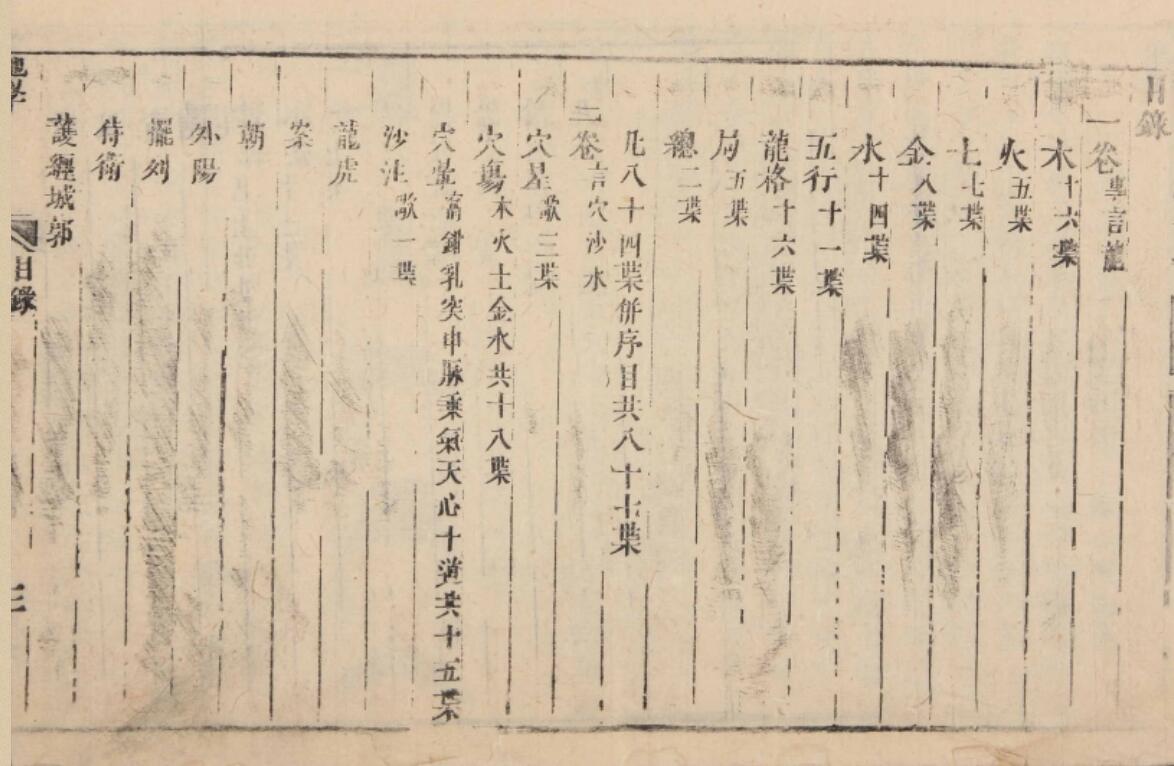 目錄
一卷專言龍
木十六葉
火五葉
土七葉
金八葉
水十四葉
五行十一葉
龍格十六葉
局五葉
總二葉
凡八十四葉併序目共八十七葉
二卷言穴沙水
穴星歌三葉
穴場木火土金水共十八葉
穴暈窩鉗乳突中脈乘氣天心十道共十五葉
沙注歌一葉
龍虎
案
朝
外陽
擺列
侍衛
護纏城郭
地學
目錄
三